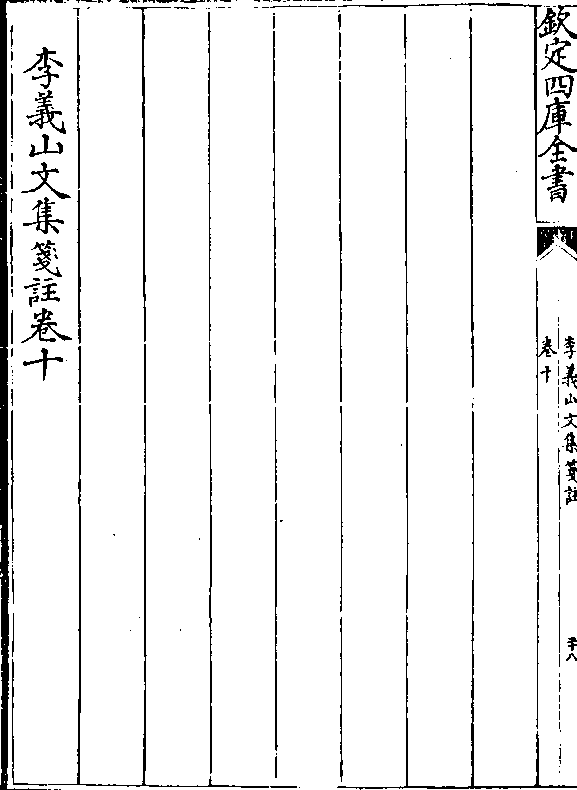 欽定四庫全書
李義山文集箋註
卷十
李義山文集箋註卷十